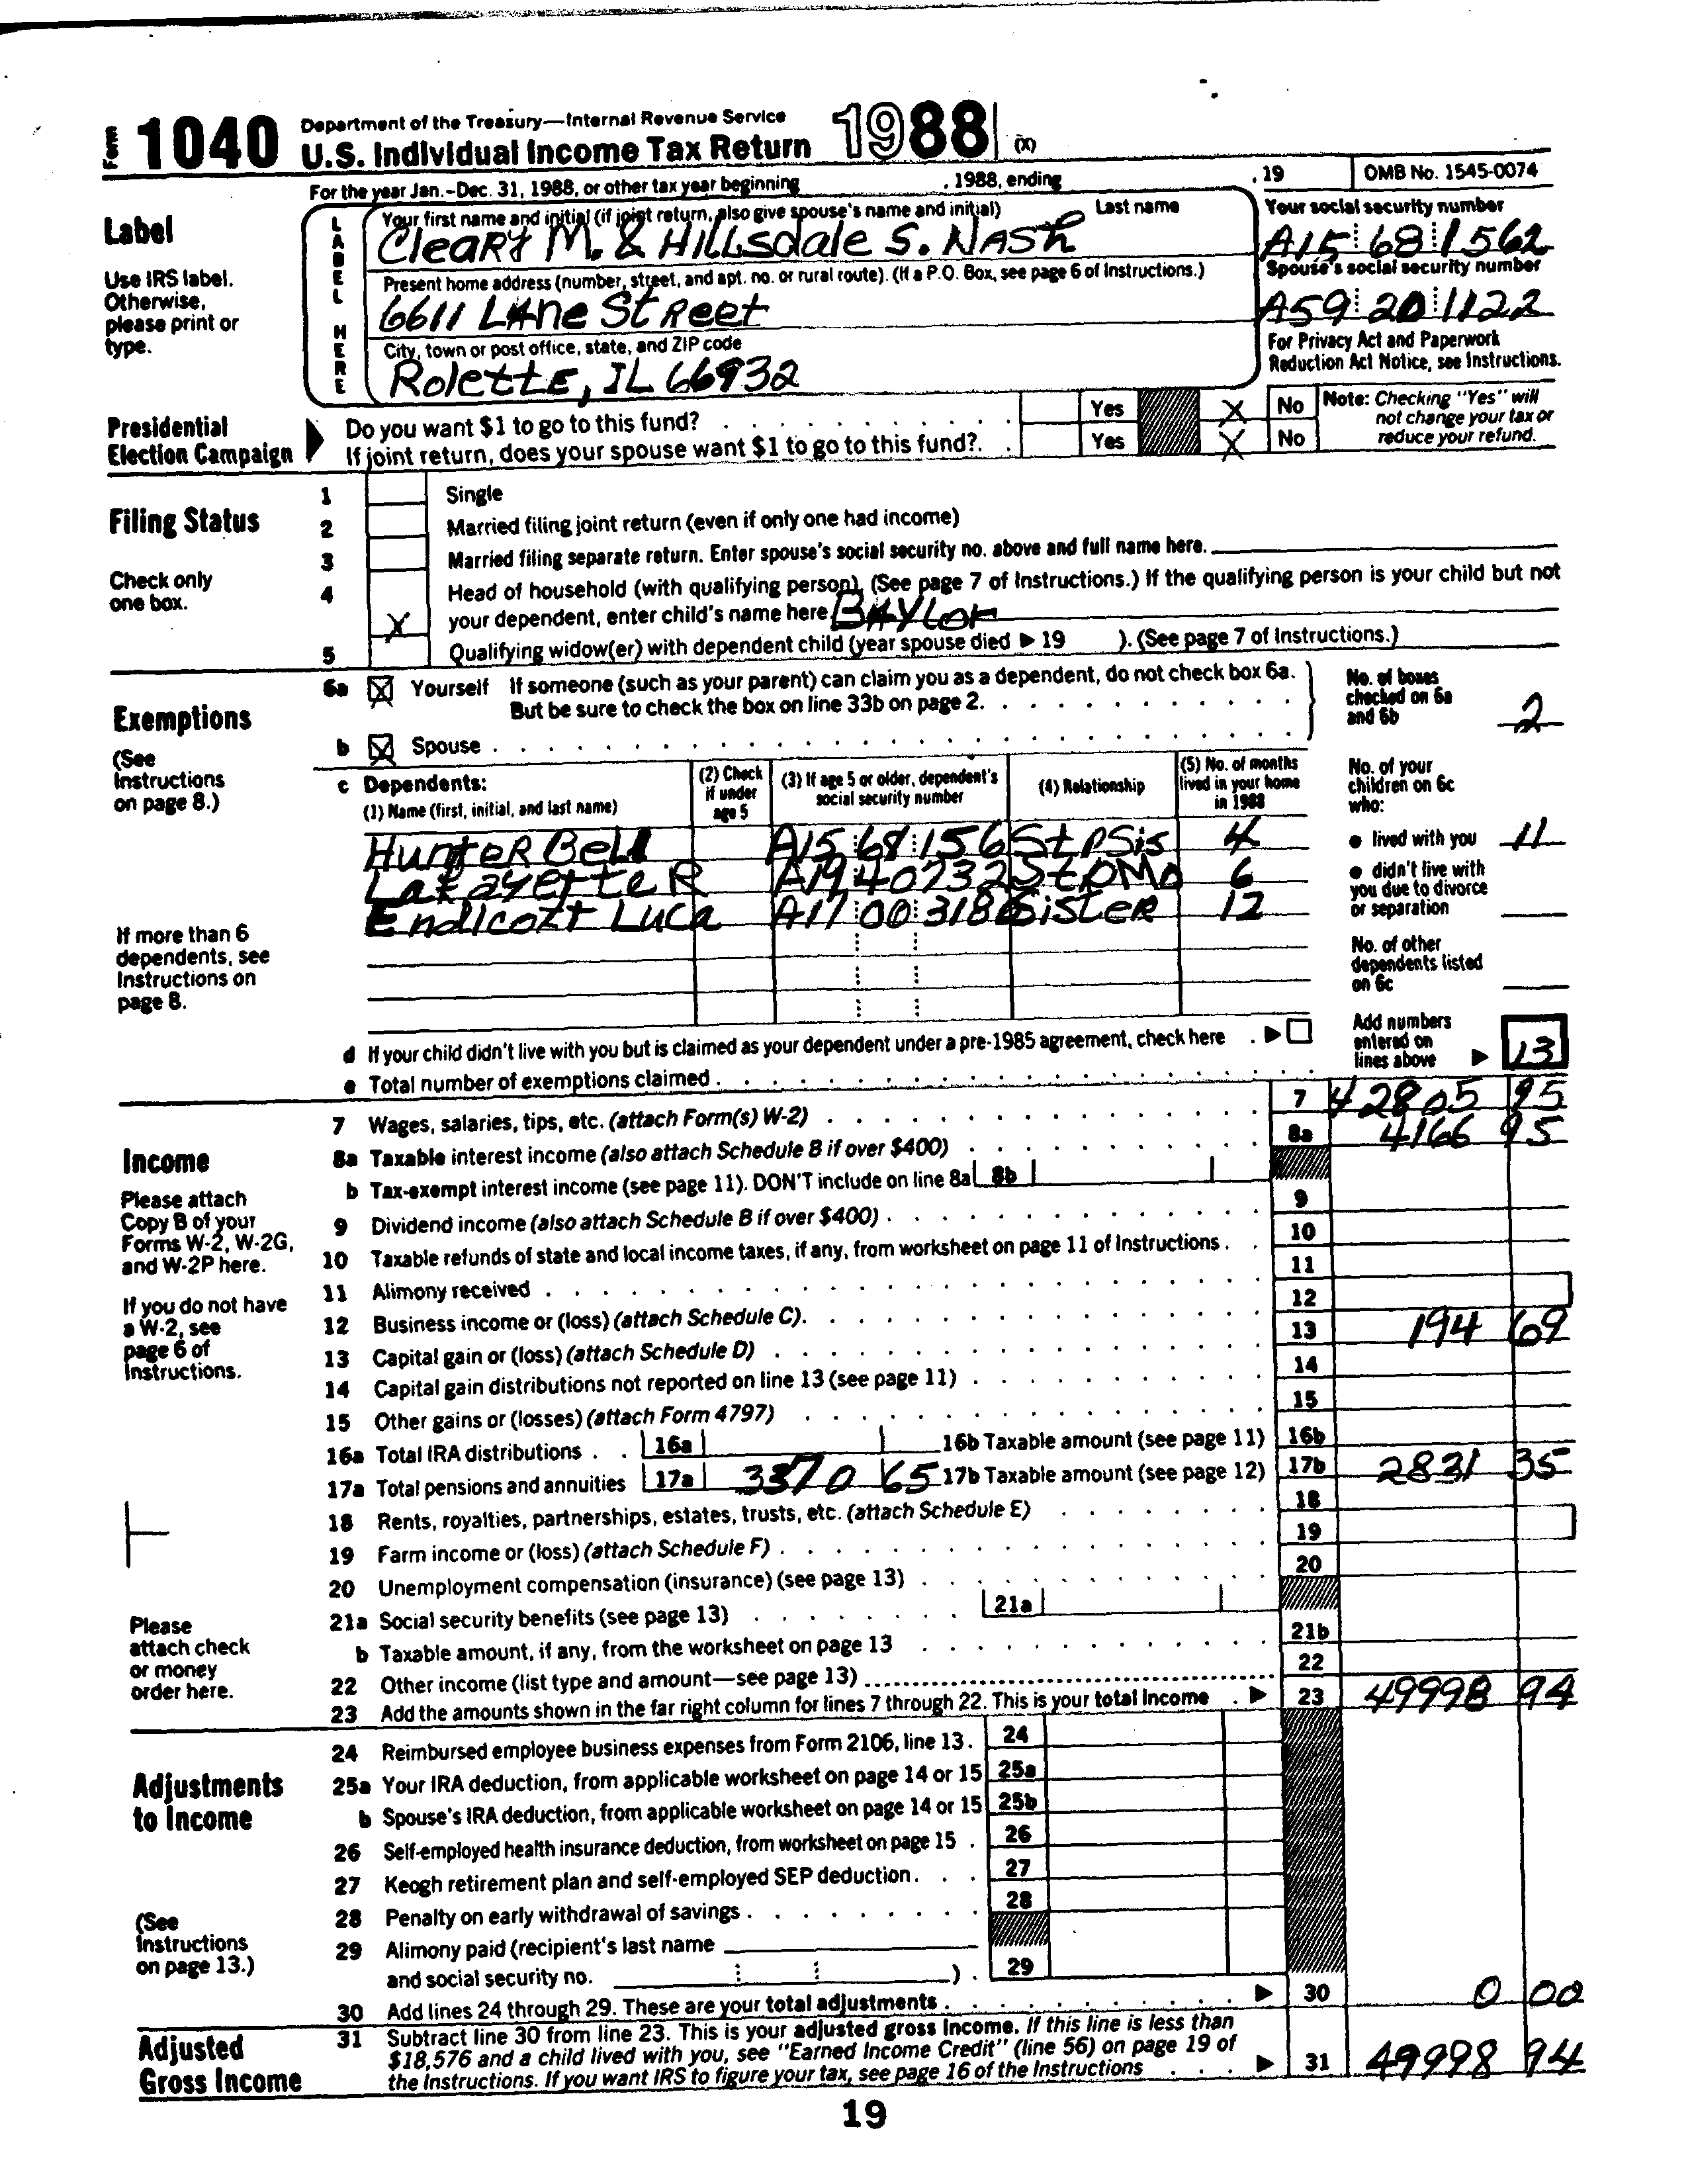 Form 1040 Department of the Treasury—Internal Revenue Service
U.S. Individual Income Tax Return 1988 (X)
For the year Jan.-Dec. 31, 1988, or other tax year beginning , 1988, ending , 19 OMB No. 1545-0074
Label
Use IRS label.
Otherwise,
please print or
type.
LABEL HERE
Your first name and initial (if joint return, also give spouse's name and initial) Last name
Cleary M. & Hillsdale S. Nash
Your social security number
A15 68 1562
Present home address (number, street, and apt. no. or rural route). (If a P.O. Box, see page 6 of Instructions.)
6611 Lane Street
Spouse's social security number
A59 20 1122
City, town or post office, state, and ZIP code
Rolette, IL 66932
For Privacy Act and Paperwork
Reduction Act Notice, see Instructions.
Presidential
Election Campaign
Do you want $1 to go to this fund? Yes X No
If joint return, does your spouse want $1 to go to this fund? Yes X No
Note: Checking "Yes" will
not change your tax or
reduce your refund.
Filing Status
Check only
one box.
1 Single
2 Married filing joint return (even if only one had income)
3 Married filing separate return. Enter spouse's social security no. above and full name here.
4 Head of household (with qualifying person). (See page 7 of Instructions.) If the qualifying person is your child but not
X your dependent, enter child's name here Baylor
5 Qualifying widow(er) with dependent child (year spouse died ▶ 19 ). (See page 7 of Instructions.)
Exemptions
(See
Instructions
on page 8.)
6a X Yourself If someone (such as your parent) can claim you as a dependent, do not check box 6a.
But be sure to check the box on line 33b on page 2.
b X Spouse
No. of boxes
checked on 6a
and 6b 2
c Dependents:
(1) Name (first, initial, and last name)
(2) Check
if under
age 5
(3) If age 5 or older, dependent's
social security number
(4) Relationship
(5) No. of months
lived in your home
in 1988
Hunter Bell A15 68 156 StpSis 4
Lafayette R A19 40 732 StpMo 6
Endicott Luca A17 00 318 Sister 12
If more than 6
dependents, see
Instructions on
page 8.
No. of your
children on 6c
who:
● lived with you 11
● didn't live with
you due to divorce
or separation
No. of other
dependents listed
on 6c
d If your child didn't live with you but is claimed as your dependent under a pre-1985 agreement, check here ▶
e Total number of exemptions claimed
Add numbers
entered on
lines above ▶ 13
Income
Please attach
Copy B of your
Forms W-2, W-2G,
and W-2P here.
If you do not have
a W-2, see
page 6 of
Instructions.
Please
attach check
or money
order here.
7 Wages, salaries, tips, etc. (attach Form(s) W-2) 7 42805 95
8a Taxable interest income (also attach Schedule B if over $400) 8a 4166 95
b Tax-exempt interest income (see page 11). DON'T include on line 8a 8b
9 Dividend income (also attach Schedule B if over $400) 9
10 Taxable refunds of state and local income taxes, if any, from worksheet on page 11 of Instructions 10
11 Alimony received 11
12 Business income or (loss) (attach Schedule C) 12
13 Capital gain or (loss) (attach Schedule D) 13 194 69
14 Capital gain distributions not reported on line 13 (see page 11) 14
15 Other gains or (losses) (attach Form 4797) 15
16a Total IRA distributions 16a 16b Taxable amount (see page 11) 16b
17a Total pensions and annuities 17a 3370 65 17b Taxable amount (see page 12) 17b 2831 35
18 Rents, royalties, partnerships, estates, trusts, etc. (attach Schedule E) 18
19 Farm income or (loss) (attach Schedule F) 19
20 Unemployment compensation (insurance) (see page 13) 20
21a Social security benefits (see page 13) 21a
b Taxable amount, if any, from the worksheet on page 13 21b
22 Other income (list type and amount—see page 13) 22
23 Add the amounts shown in the far right column for lines 7 through 22. This is your total income ▶ 23 49998 94
Adjustments
to Income
(See
Instructions
on page 13.)
24 Reimbursed employee business expenses from Form 2106, line 13. 24
25a Your IRA deduction, from applicable worksheet on page 14 or 15 25a
b Spouse's IRA deduction, from applicable worksheet on page 14 or 15 25b
26 Self-employed health insurance deduction, from worksheet on page 15 26
27 Keogh retirement plan and self-employed SEP deduction 27
28 Penalty on early withdrawal of savings 28
29 Alimony paid (recipient's last name
and social security no. ) 29
30 Add lines 24 through 29. These are your total adjustments ▶ 30 0 00
Adjusted
Gross Income
31 Subtract line 30 from line 23. This is your adjusted gross income. If this line is less than
$18,576 and a child lived with you, see "Earned Income Credit" (line 56) on page 19 of
the Instructions. If you want IRS to figure your tax, see page 16 of the Instructions ▶ 31 49998 94
19